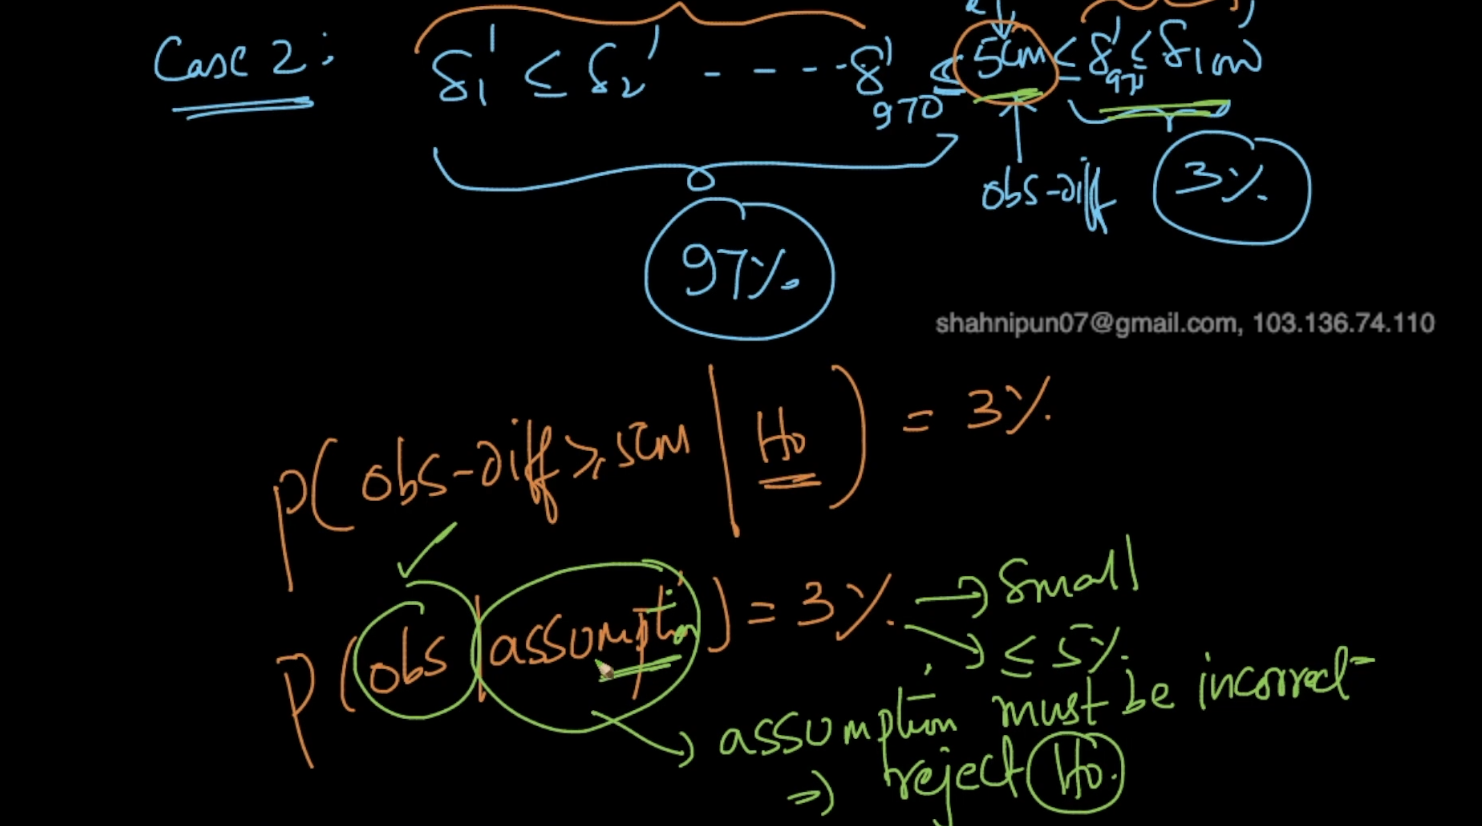 Case 2: δ₁' ≤ δ₂' - - - - δ'₉₇₀ ≤ 5cm ≤ δ'₉₇₁ ≤ δ'₁₀₀₀
obs-diff 3%
97%
shahnipun07@gmail.com, 103.136.74.110
P(obs-diff ≥ 5cm | H₀) = 3%
P(obs | assumption) = 3% → small
→ ≤ 5%
→ assumption must be incorrect
⇒ reject H₀.